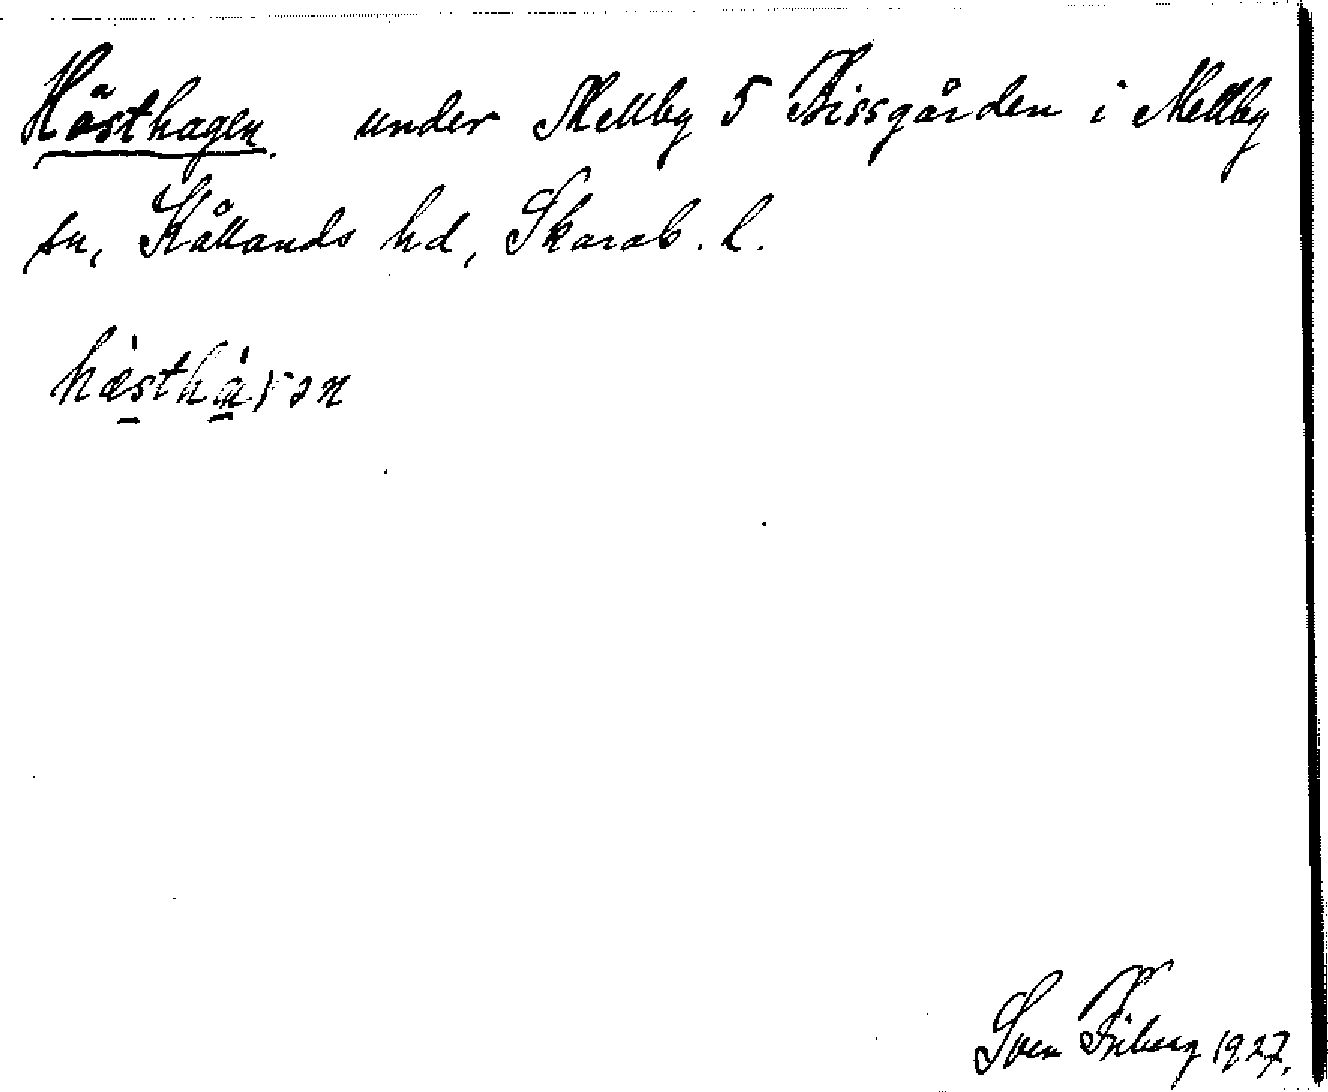 Hästhagen under Mellby 5 Bissgården i Mellby
sn, Kållands hd, Skarab. l.
hæsthaɤən
Sven Friberg 1927.